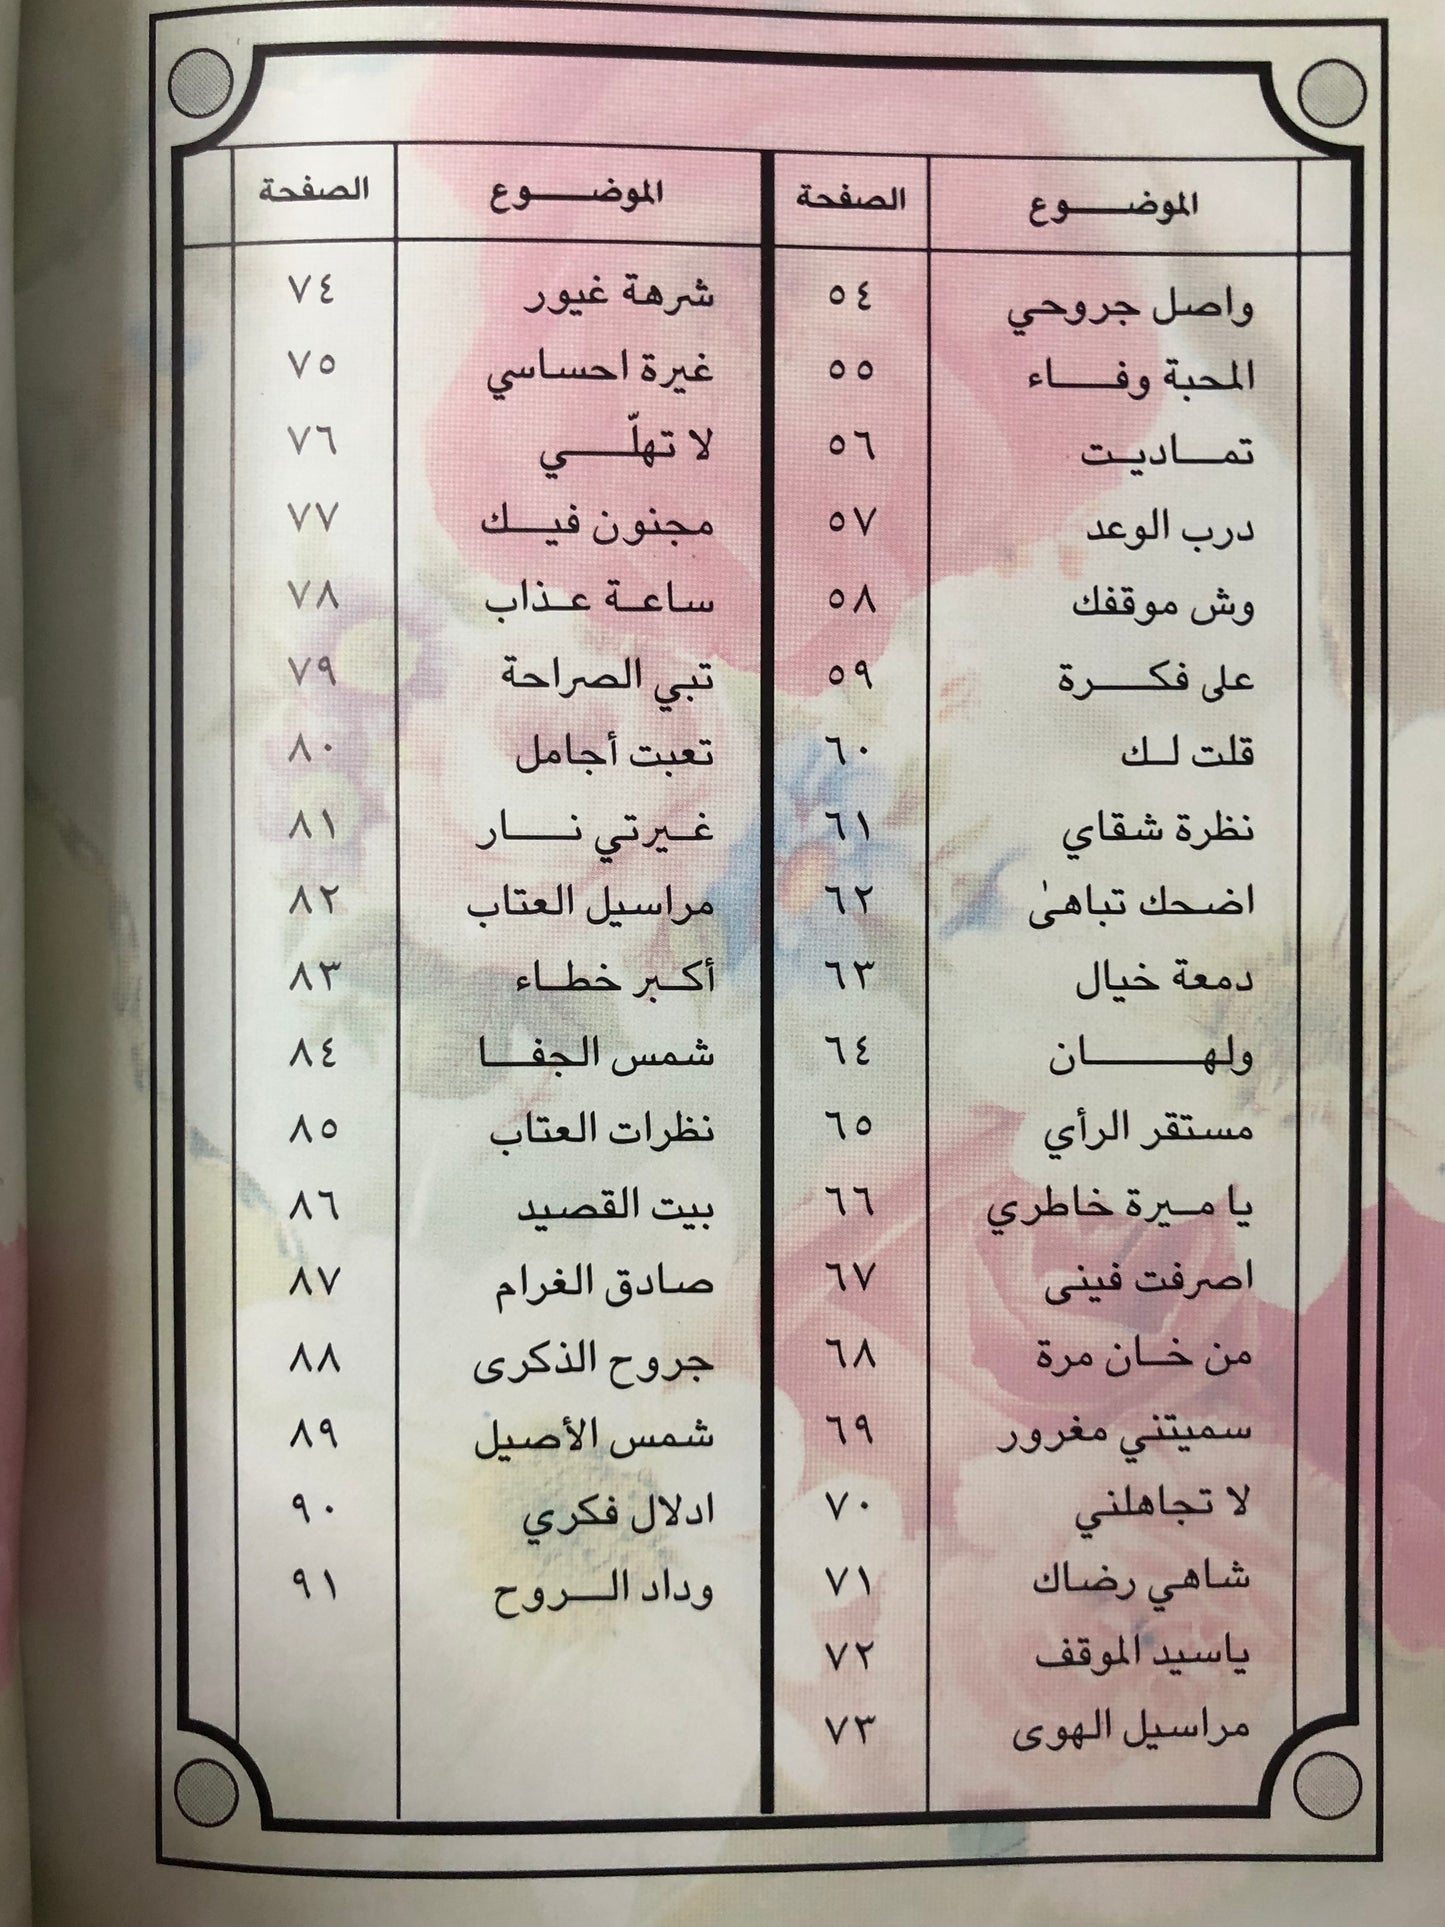 الموضوع الصفحة
واصل جروحي ٥٤
المحبة وفاء ٥٥
تماديت ٥٦
درب الوعد ٥٧
وش موقفك ٥٨
على فكرة ٥٩
قلت لك ٦٠
نظرة شقاي ٦١
اضحك تباهىٰ ٦٢
دمعة خيال ٦٣
ولهان ٦٤
مستقر الرأي ٦٥
يا ميرة خاطري ٦٦
اصرفت فينى ٦٧
من خان مرة ٦٨
سميتني مغرور ٦٩
لا تجاهلني ٧٠
شاهي رضاك ٧١
ياسيد الموقف ٧٢
مراسيل الهوى ٧٣
الموضوع الصفحة
شرهة غيور ٧٤
غيرة احساسي ٧٥
لا تهلّي ٧٦
مجنون فيك ٧٧
ساعة عذاب ٧٨
تبي الصراحة ٧٩
تعبت أجامل ٨٠
غيرتي نار ٨١
مراسيل العتاب ٨٢
أكبر خطاء ٨٣
شمس الجفا ٨٤
نظرات العتاب ٨٥
بيت القصيد ٨٦
صادق الغرام ٨٧
جروح الذكرى ٨٨
شمس الأصيل ٨٩
ادلال فكري ٩٠
وداد الروح ٩١